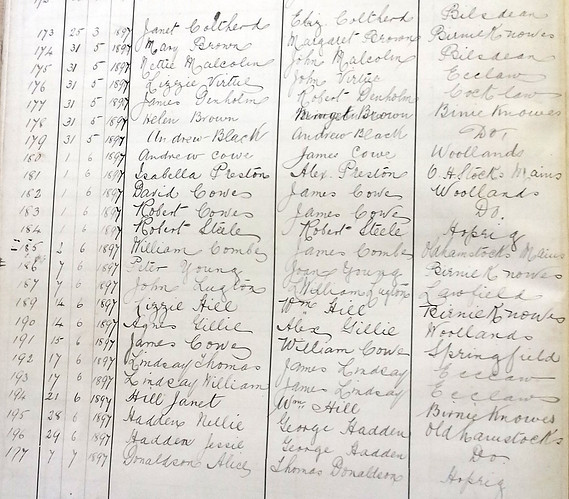 173 25 3 1897 Janet Coltherd Eliz. Coltherd Bilsdean
174 31 5 1897 Mary Brown Margaret Brown Birnie Knowes
175 31 5 1897 Nettie Malcolm John Malcolm Bilsdean
176 31 5 1897 Lizzie Virtue John Virtue Ecclaw
177 31 5 1897 James Denholm Robert Denholm Cocklaw
178 31 5 1897 Helen Brown Brown Binie Knowes
179 31 5 1897 Andrew Black Andrew Black Do.
180 1 6 1897 Andrew Cowe James Cowe Woollands
181 1 6 1897 Isabella Preston Alex. Preston O.H.Stocks Mains
182 1 6 1897 David Cowes James Cowe Woollands
183 1 6 1897 Robert Cowes James Cowe Do.
184 1 6 1897 Robert Steele Robert Steele Hoprig
185 2 6 1897 William Combe James Combe Oldhamstocks Mains
186 7 6 1897 Peter Young Joan Young Birnie Knowes
187 7 6 1897 John Lugton William Lugton Lawfield
189 14 6 1897 Lizzie Hill Wm Hill Birnie Knowes
190 14 6 1897 Agnes Gillie Alex Gillie Woollands
191 15 6 1897 James Cowe William Cowe Springfield
192 17 6 1897 Lindsay Thomas James Lindsay Ecclaw
193 17 6 1897 Lindsay William James Lindsay Ecclaw
194 21 6 1897 Hill Janet Wm Hill Birnie Knowes
195 28 6 1897 Hadden Nellie George Hadden Oldhamstocks
196 29 6 1897 Hadden Jessie George Hadden Do
197 7 7 1897 Donaldson Alice Thomas Donaldson Hoprig